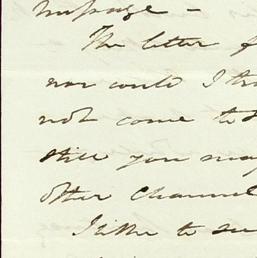 message –
The letter f
nor could I tru
not come to
still you may
other Channel
to su